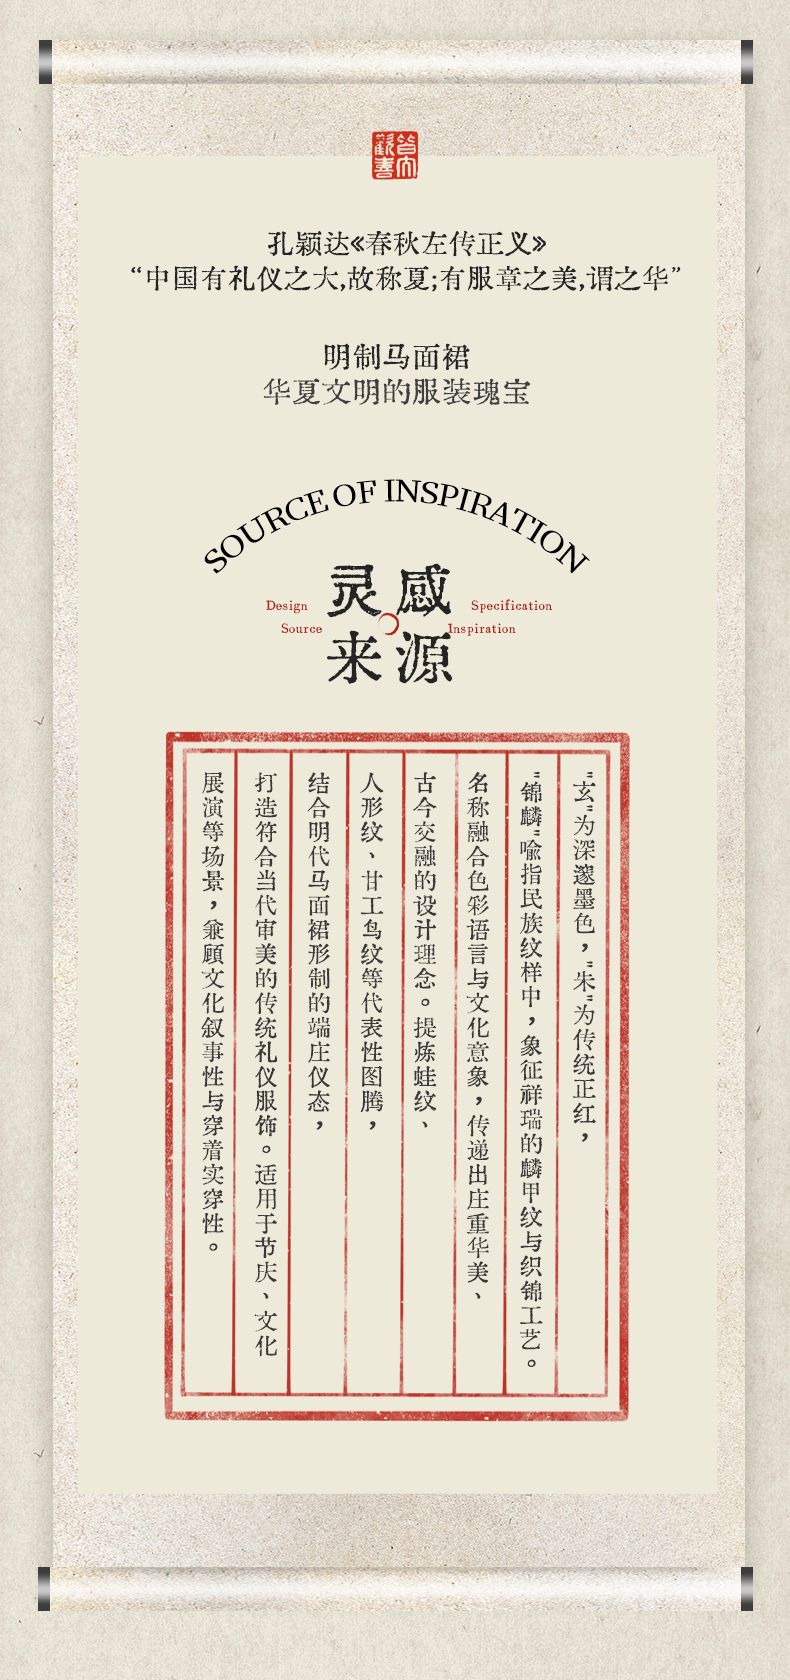 孔颖达《春秋左传正义》
“中国有礼仪之大,故称夏;有服章之美,谓之华”
明制马面裙
华夏文明的服装瑰宝
SOURCE OF INSPIRATION
感灵
源来
Design
Specification
Source
Inspiration
"玄"为深邃墨色，"朱"为传统正红，
"锦麟"喻指民族纹样中，象征祥瑞的麟甲纹与织锦工艺。
名称融合色彩语言与文化意象，传递出庄重华美、
古今交融的设计理念。提炼蛙纹、
人形纹、甘工鸟纹等代表性图腾，
结合明代马面裙形制的端庄仪态，
打造符合当代审美的传统礼仪服饰。适用于节庆、文化
展演等场景，兼顧文化叙事性与穿着实穿性。